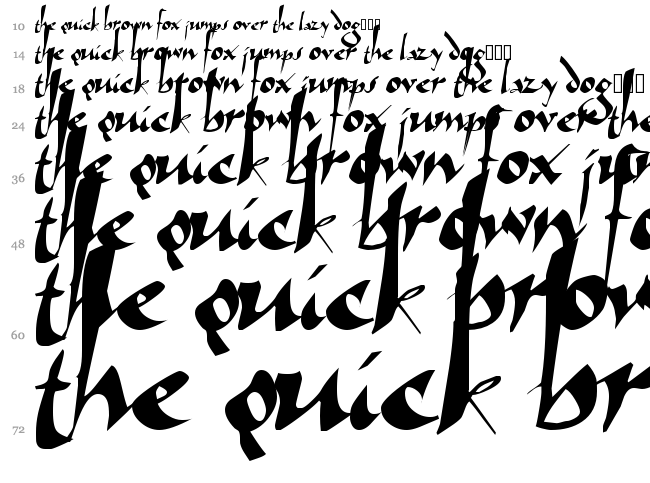 10 the quick brown fox jumps over the lazy dog
14 the quick brown fox jumps over the lazy dog
18 the quick brown fox jumps over the lazy dog
24 the quick brown fox jumps over the
36 the quick brown fox jum
48 the quick brown fo
60 the quick brow
72 the quick br